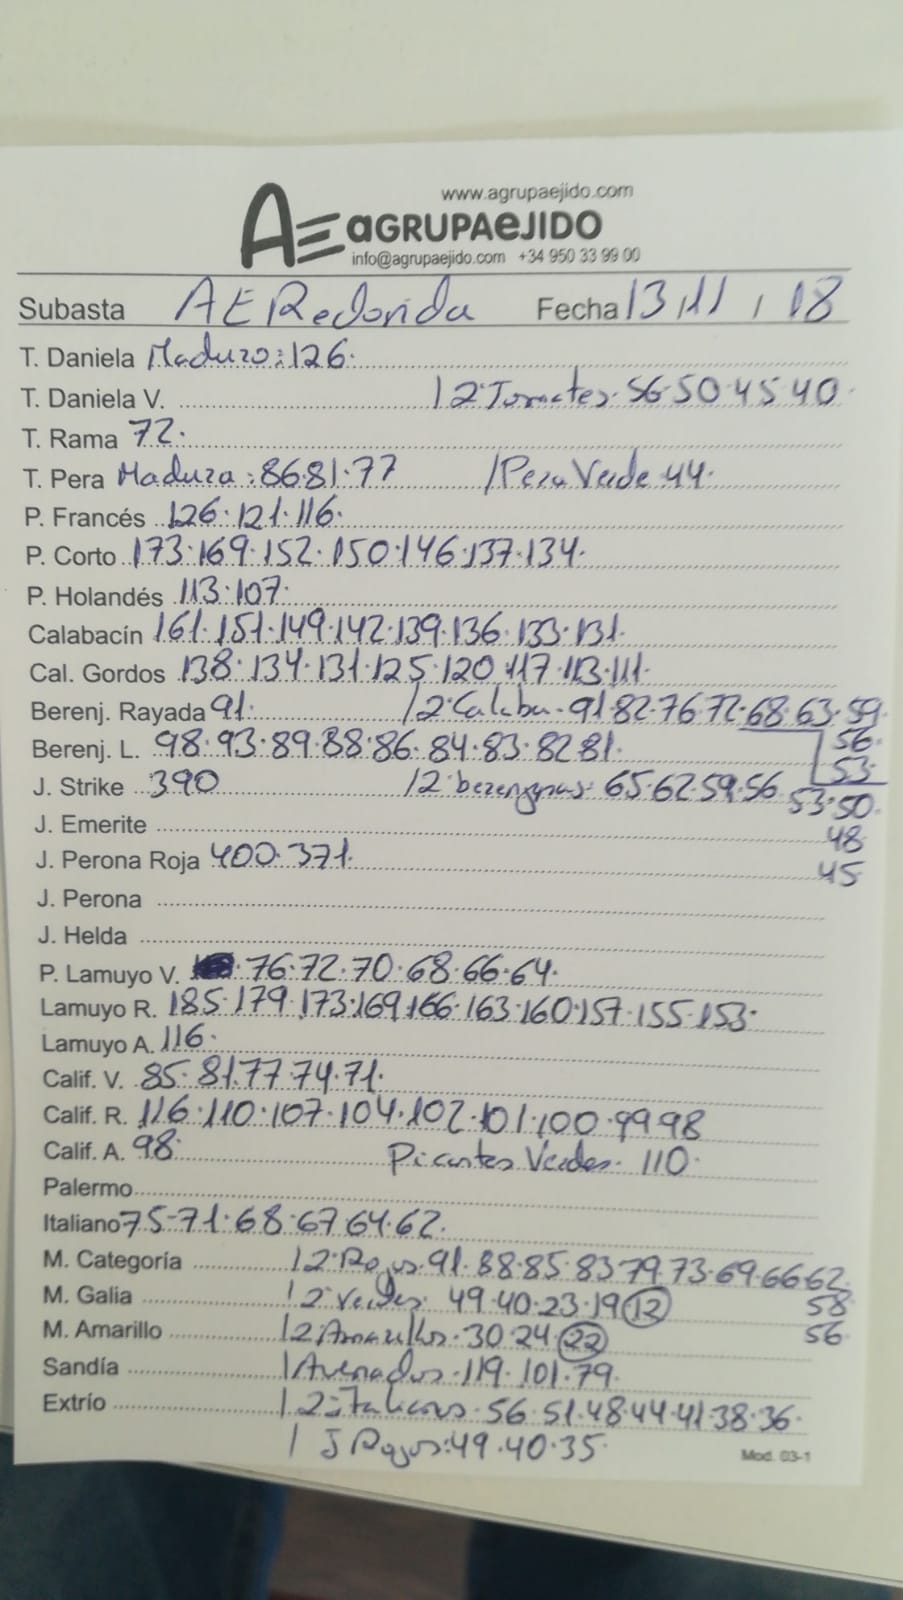 www.agrupaejido.com
AE aGRUPAeJIDO
info@agrupaejido.com +34 950 33 99 00
Subasta AE Redonda Fecha 13/11/18
T. Daniela Maduro: 126.
T. Daniela V. / 2ª Tomates. 56.50.45.40.
T. Rama 72.
T. Pera Madura: 86.81.77 / Pera Verde 44.
P. Francés 126.121.116.
P. Corto 173.169.152.150.146.137.134.
P. Holandés 113.107.
Calabacín 161.151.149.142.139.136.133.131.
Cal. Gordos 138.134.131.125.120.117.113.111.
Berenj. Rayada 91. / 2ª Calaba. 91.82.76.72.68.63.59.
56.
Berenj. L. 98.93.89.88.86.84.83.82.81.
53.
J. Strike 390 / 2ª berenjenas: 65.62.59.56.53.50.
J. Emerite 48.
J. Perona Roja 400.371. 45
J. Perona
J. Helda
P. Lamuyo V. 76.72.70.68.66.64.
Lamuyo R. 185.179.173.169.166.163.160.157.155.153.
Lamuyo A. 116.
Calif. V. 85.81.77.74.71.
Calif. R. 116.110.107.104.102.101.100.99.98
Calif. A. 98. Picantes Verdes. 110.
Palermo
Italiano 75-71.68.67.64.62.
M. Categoría / 2ª Rojos. 91.88.85.83.79.73.69.66.62.
M. Galia / 2ª Verdes. 49.40.23.19 12 58
M. Amarillo / 2 Amarillos. 30.24 22 56.
Sandía / Asurados. 119.101.79.
Extrío / 2ª Italianos. 56.51.48.44.41.38.36.
/ J Rojos: 49.40.35.
Mod. 03-1